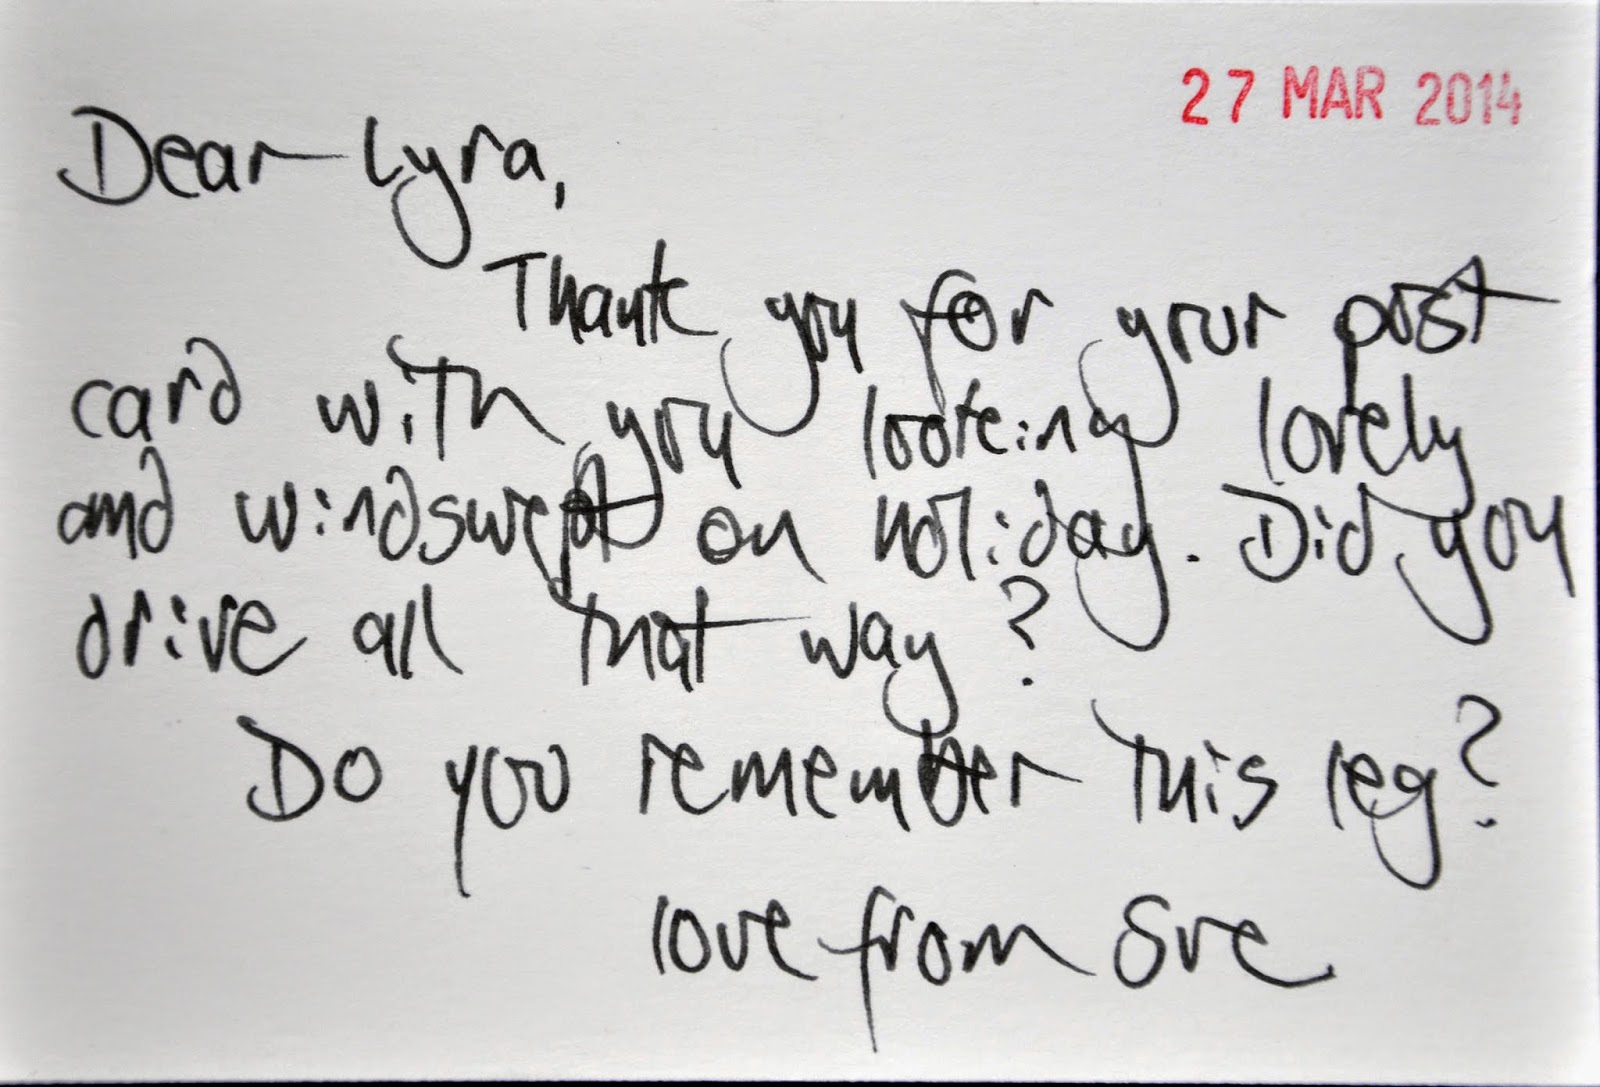 27 MAR 2014
Dear Lyra,
Thank you for your post
card with you looking lovely
and windswept on holiday. Did you
drive all that way?
Do you remember this leg?
love from Sve